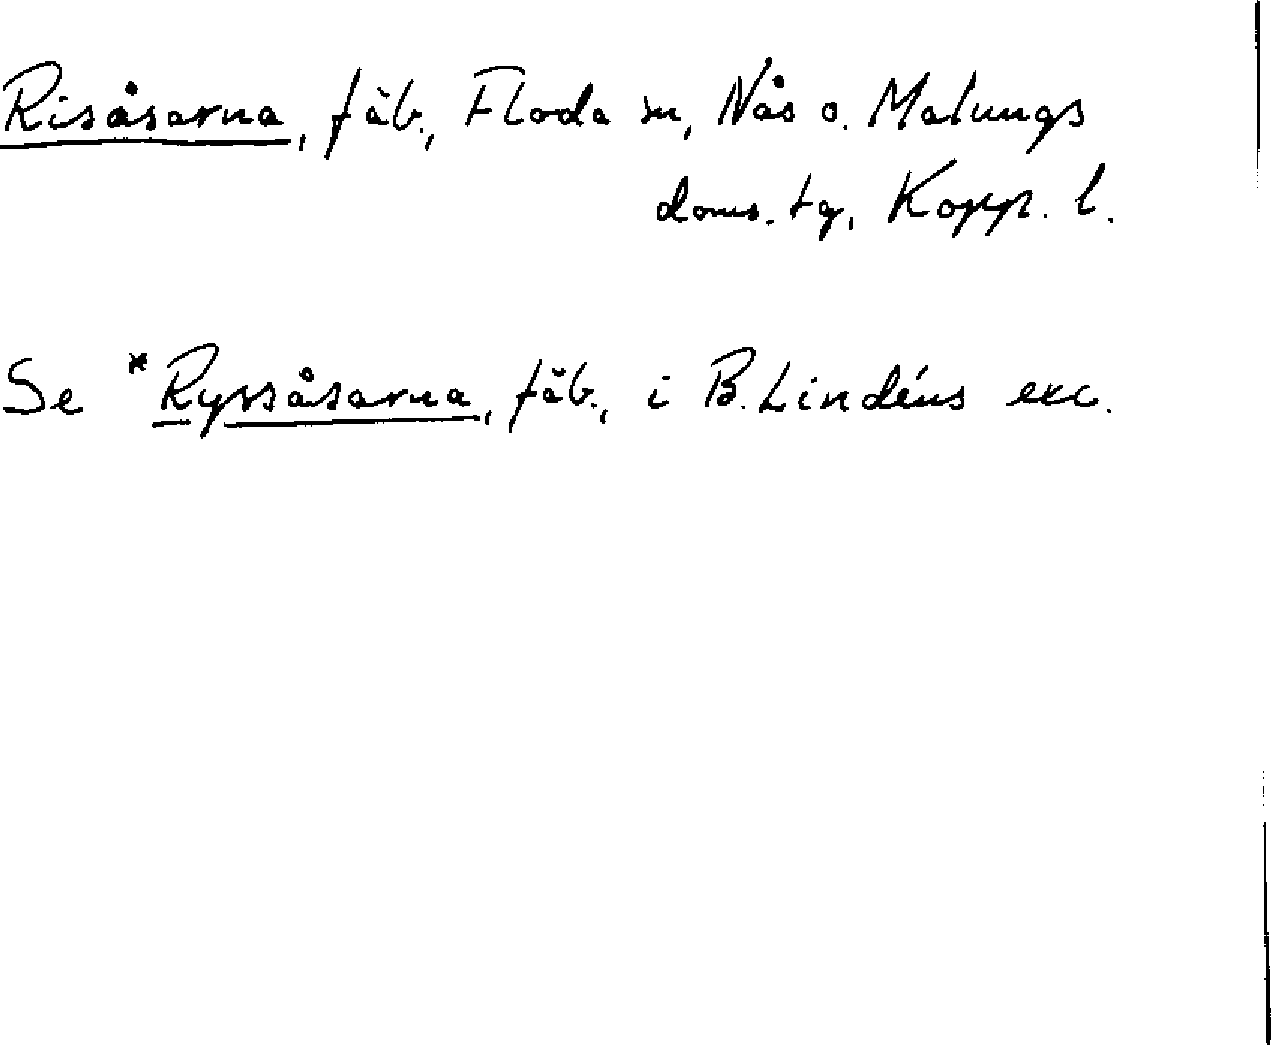 Risåsarna, fäb., Floda sn, Nås o. Malungs
doms. tg, Kopp. l.
Se *Ryssåsarna, fäb., i B. Lindéns exc.